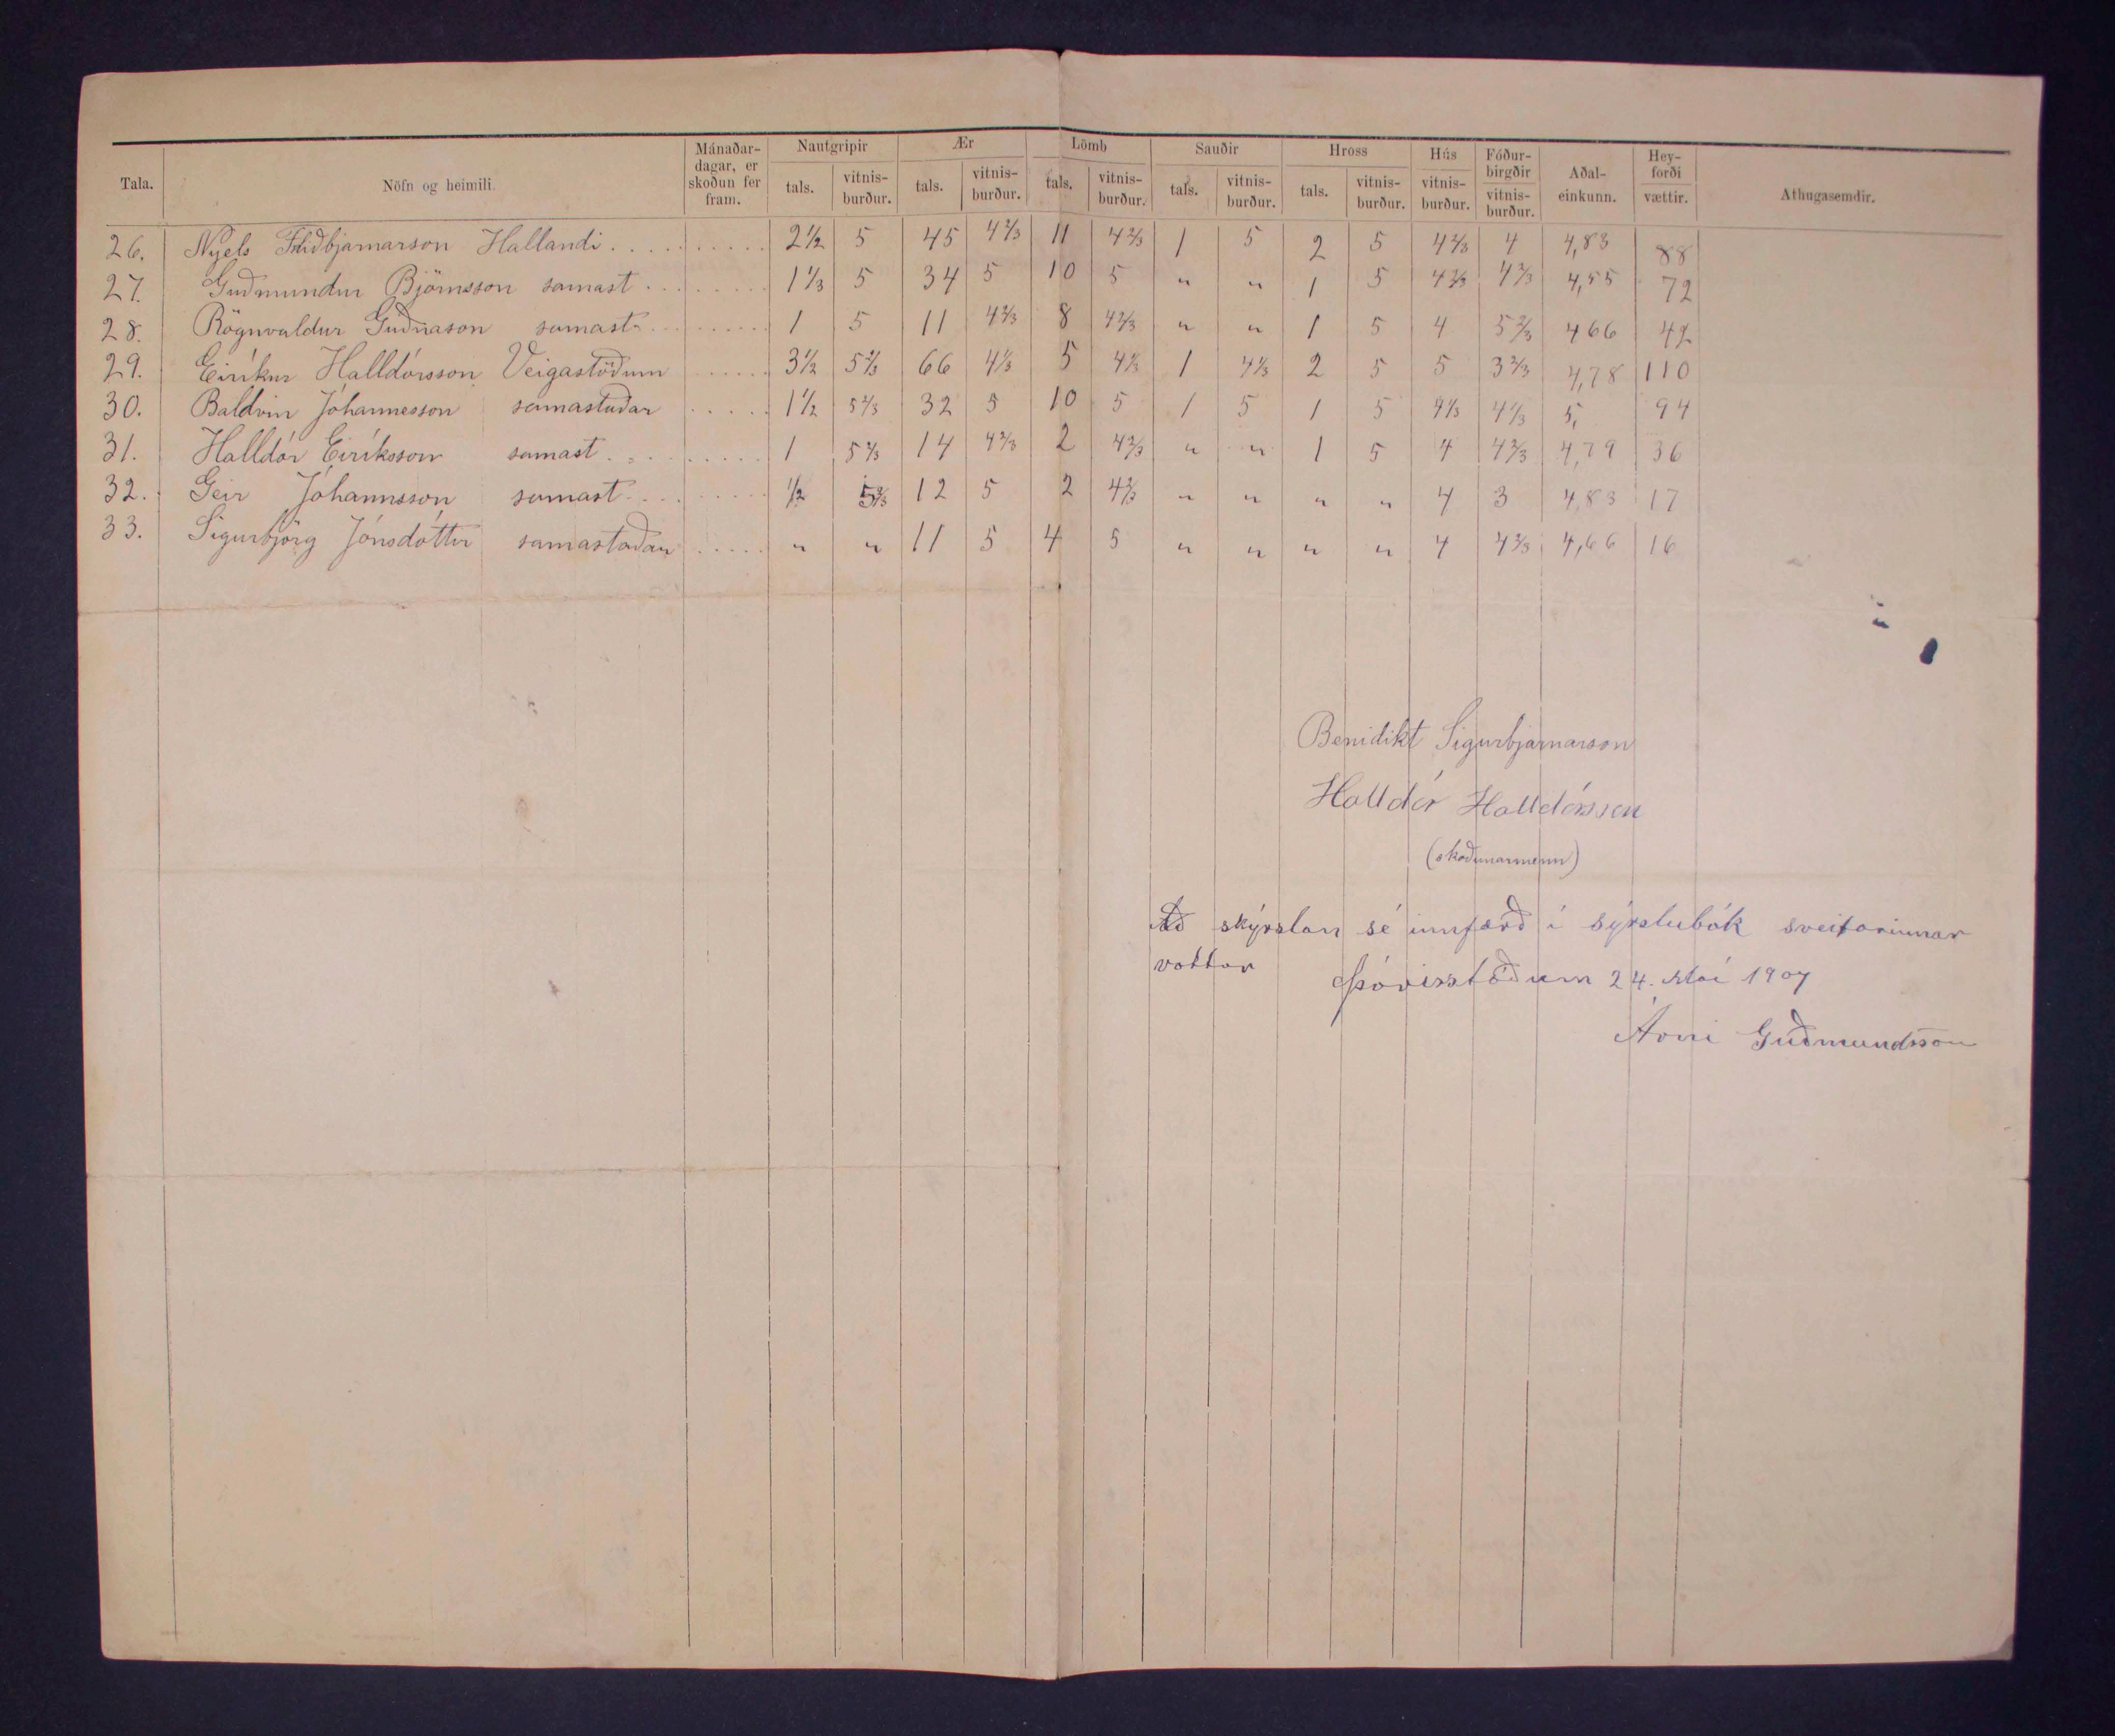 Tala. Nöfn og heimili. Mánaðar-dagar, er skoðun fer fram. Nautgripir tals. vitnis-burður. Ær tals. vitnis-burður. Lömb tals. vitnis-burður. Sauðir tals. vitnis-burður. Hross tals. vitnis-burður. Hús vitnis-burður. Fóður-birgðir vitnis-burður. Aðal-einkunn. Hey-forði vættir. Athugasemdir.
26. Nyels Friðbjarnarson Hallandi 2 1/2 5 45 4 2/3 11 4 2/3 1 5 2 5 4 2/3 4 4,83 88
27. Guðmundur Björnsson samast. 1 1/3 5 34 5 10 5 " " 1 5 4 2/3 4 2/3 4,55 72
28. Rögnvaldur Guðnason samast. 1 5 11 4 2/3 8 4 2/3 " " 1 5 4 5 2/3 466 42
29. Eiríkur Halldórsson Veigastöðum 3 1/2 5 2/3 66 4 1/3 5 4 1/3 1 4 1/3 2 5 5 3 2/3 4,78 110
30. Baldvin Jóhannesson samastaðar 1 1/2 5 2/3 32 5 10 5 1 5 1 5 4 1/3 4 1/3 5, 94
31. Halldór Eiríksson samast. 1 5 2/3 14 4 2/3 2 4 2/3 " " 1 5 4 4 2/3 4,79 36
32. Geir Jóhannsson samast. 1/2 5 2/3 12 5 2 4 2/3 " " " " 4 3 4,83 17
33. Sigurbjörg Jónsdóttir samastaðar " " 11 5 4 5 " " " " 4 4 2/3 4,66 16
Benidikt Sigurbjarnarson
Halldór Halldórsson
(skoðunarmenn)
Að skýrslan sé innfærð í sýslubók sveitarinnar
vottar
Þórisstöðum 24. Maí 1907
Árni Guðmundsson